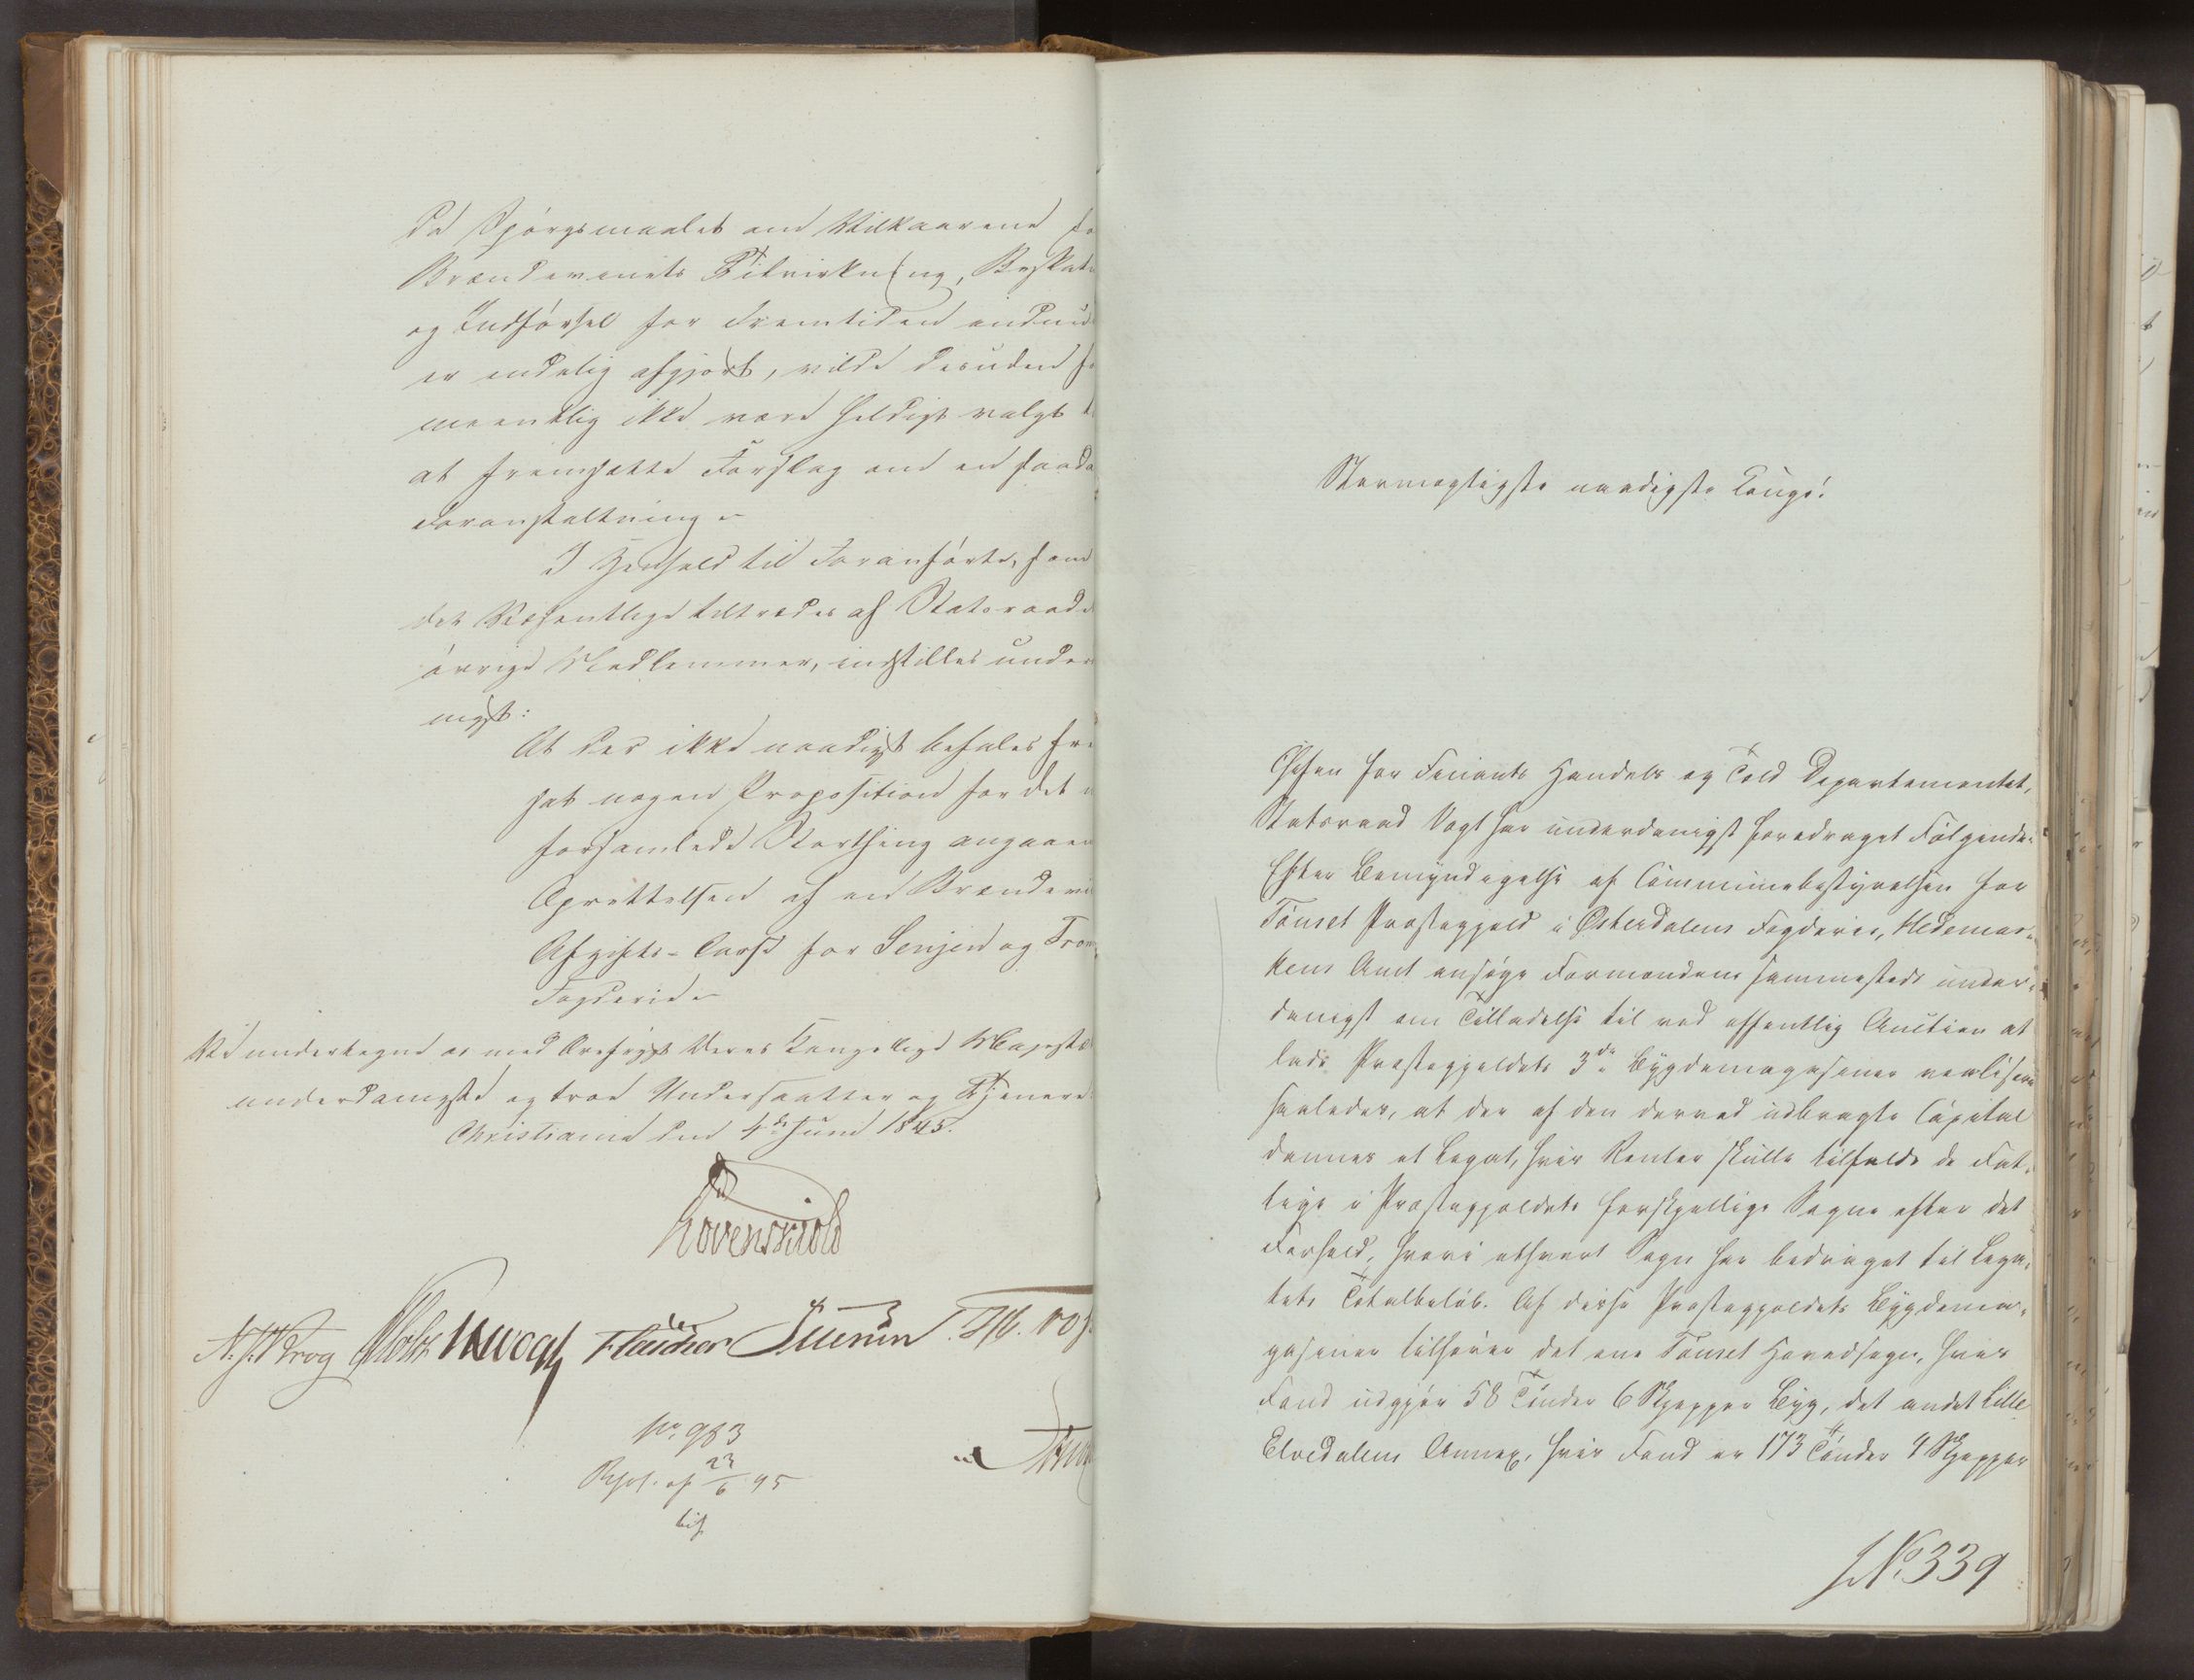 Da Spørgsmaalet om Vilkaarene fo
Brændevinets Tilvirkning, Beskatn
og Indførsel for Fremtiden endnu
er endelig afgjort, vilde desuden
meentlig ikke være heldigt valgt
at fremsætte Forslag om en saada
Foranstaltning.
I Henhold til Foranførte, som
det Væsentlige tiltrædes af Statsraade
øvrige Medlemmer, indstilles under
nigst:
At der ikke naadigst befales fre
sat nogen Proposition for det n
forsamlede Storthing angaaen
Oprettelsen af en Brændevi
Afgifts-Casse for Senjen og Trom
Fogderie.
Vi undertegne os med Ærefrygt Deres Kongelige Majestæ
underdanigste og troe Undersaatter og Tjenere.
Christiania den 4de Juni 1845.
Løvenskiold
N. J. Krog Holst JHVogt Fleischer Sueren
No. 983
Resol. af 23/6 45
Stormægtigste naadigste Konge!
Chefen for Finants Handels og Told Departementet,
Statsraad Vogt har underdanigst foredraget Følgende:
Efter Bemyndigelse af Communebestyrelsen for
Tønset Præstegjeld i Østerdalens Fogderie, Hedemar-
kens Amt ansøge Formændene sammesteds under-
danigst om Tilladelse til ved offentlig Auction at
lade Præstegjeldets 3de Bygdemagasiner realisere
saaledes, at der af den derved udbragte Capital
dannes et Legat, hvis Renter skulle tilfalde de Fat-
tige i Præstegjeldets forskjellige Sogne efter det
Forhold, hvori ethvert Sogn har bidraget til Lega-
tets Totalbeløb. Af disse Præstegjeldets Bygdema-
gasiner tilhører det ene Tønset Hovedsogn, hvis
Fond udgjør 58 Tønder 6 Skjepper Byg, det andet Lille
Elvedalens Annex, hvis Fond er 173 Tønder 4 Skjepper
No. 339